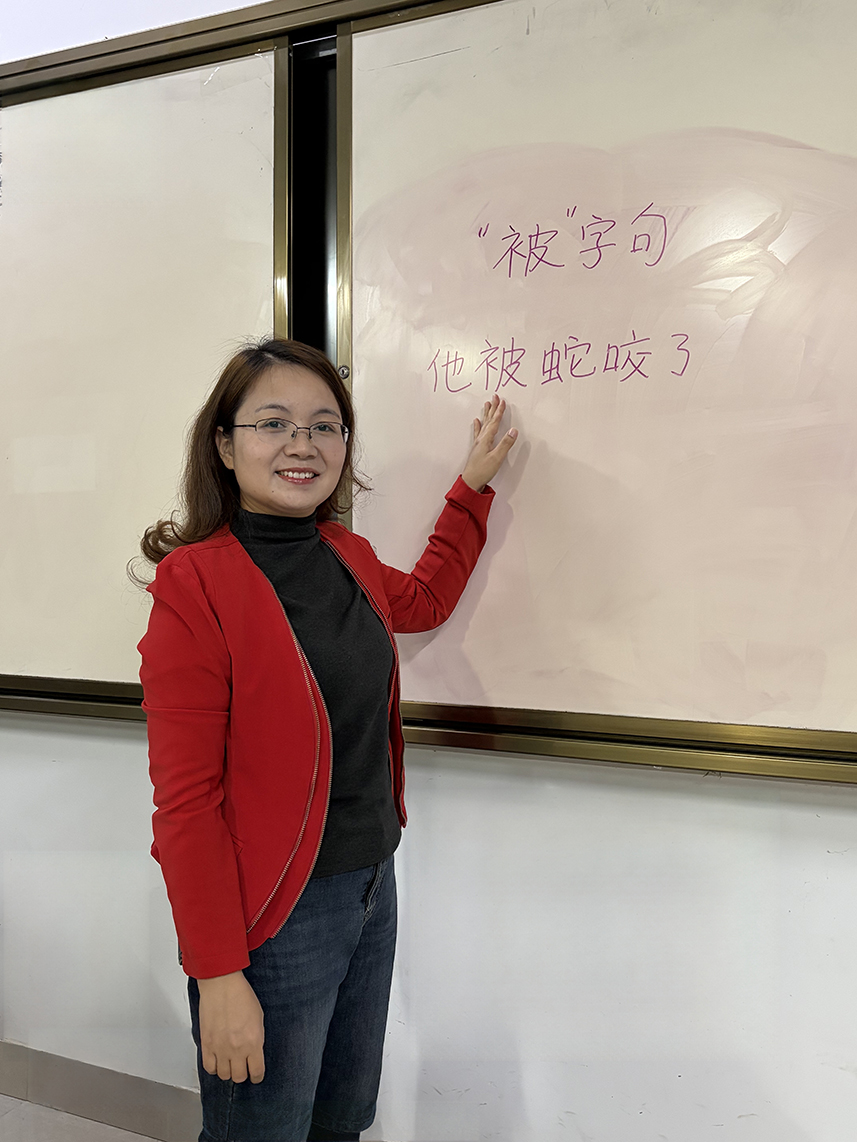 “被”字句
他被蛇咬了